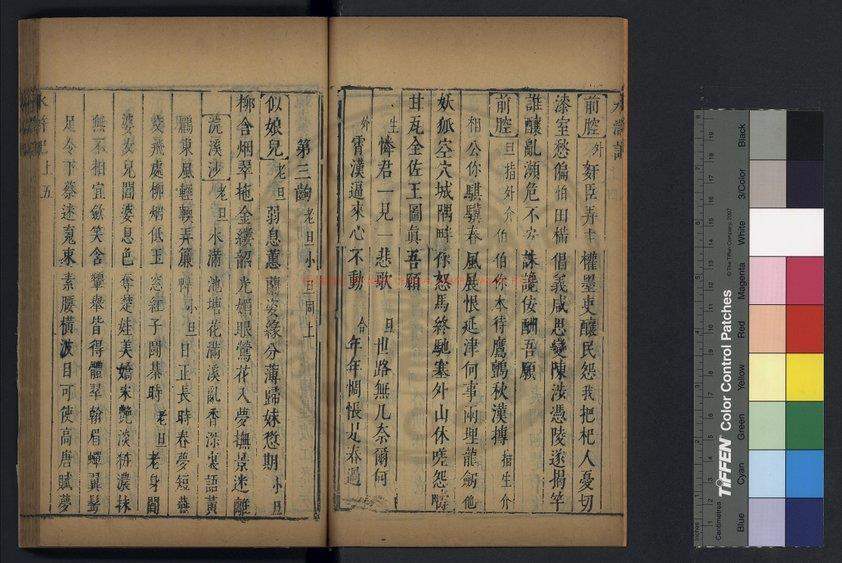 水滸記
前腔 外 奸臣弄主權墨吏釀民怨我把杞人憂切
漆室愁偏怕田橫倡義咸思變陳涉憑陵遂揭竿
誰釀亂瀕危不安誅讒佞酬吾願
前腔 旦指外介 伯伯你本待鷹鸇秋漢摶 指生介
相公你騏驥春風展恨延津何事兩埋龍劒他
妖狐空穴城隅畔你怒馬終馳塞外山休嗟怨
甘瓦全佐王圖眞吾願
生 憐君一見一悲歌 旦 世路無几奈爾何
外 霄漢逼來心不動 合 年年惆悵是春過
第三齣 老旦小旦同上
似娘兒 老旦 弱息蕙蘭姿緣分薄歸妹愆期 小旦
柳含烟翠拖金縷韶光媚眼鶯花入夢撫景迷離
浣溪沙 老旦 水滿池塘花滿溪亂香深裏語黃
鸝東風輕軟弄簾 小旦 日正長時春夢短燕
交飛處柳烟低玉窓紅子鬪棊時 老旦 老身閻
婆女兒閻婆息色奪楚娃美嬌宋艷淡粧濃抹
無不相宜歛笑含顰舉皆得體翠翰眉蟬翼髩
足令下蔡迷魂束素腰橫波目可使高唐賦夢
水滸記上 五
Black
3/Color
White
Magenta
Red
Yellow
Green
Cyan
Blue
TIFFEN Color Control Patches
© The Tiffen Company, 2007
Inches
Centimetres